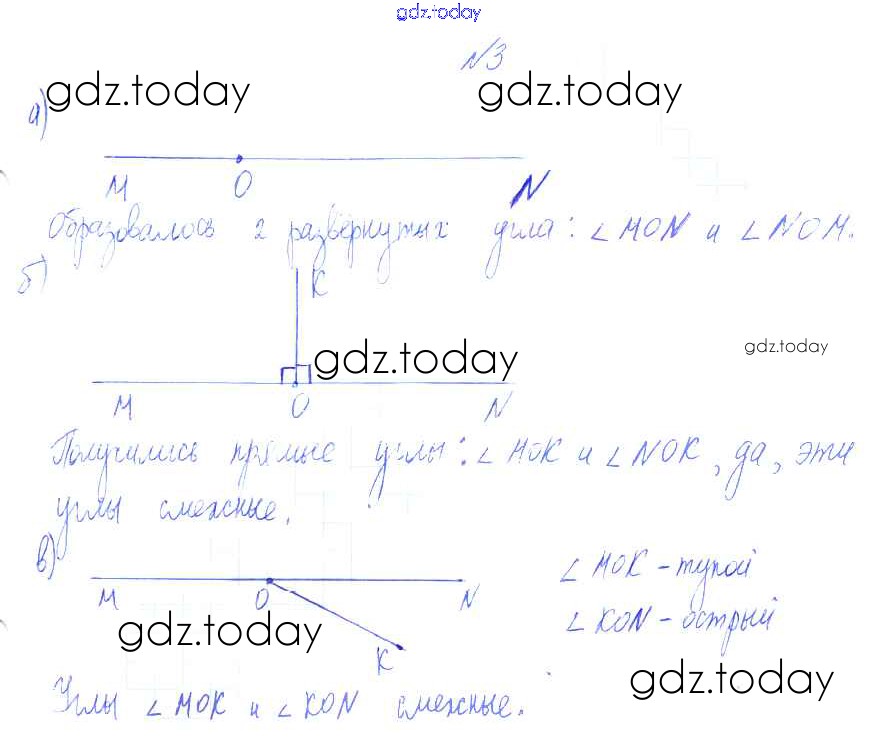 gdz.today
№3
gdz.today gdz.today
а)
M O N
Образовалось 2 развёрнутых угла: ∠MON и ∠NOM.
б)
K
gdz.today gdz.today
M O N
Получились прямые углы: ∠MOK и ∠NOK, да, эти
углы смежные.
в)
M O N
K
∠MOK - тупой
∠KON - острый
gdz.today
gdz.today
Углы ∠MOK и ∠KON смежные.